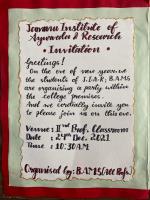 Institute of
Ayurveda & Research
• Invitation •
Greetings!
On the eve of new year, we
the students of J.I.A.R; B.A.M.S
are organising a party within
the college premises.
And we cordially invite you
to please join us on this eve.
Venue: IInd Prof. Classroom
Date: 24th Dec, 2021
Time: 10:30AM
Organised by: B.A.M.S (All Profs)